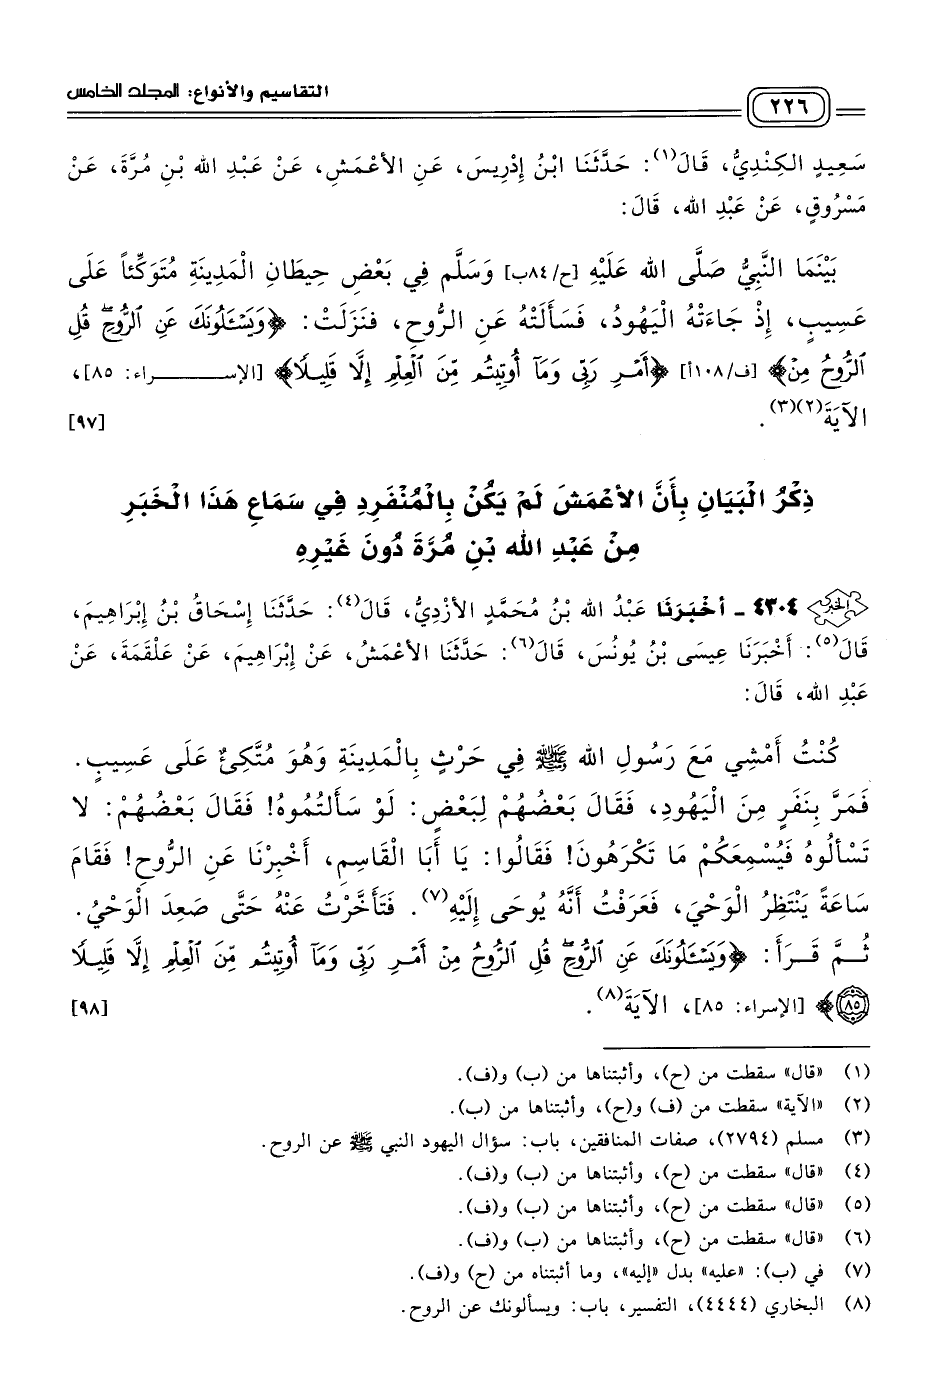 ٢٢٦ التقاسيم والأنواع: المجلد الخامس
سَعِيدٍ الكِنْدِيُّ، قَالَ(١): حَدَّثَنَا ابْنُ إِدْرِيسَ، عَنِ الأَعْمَشِ، عَنْ عَبْدِ الله بْنِ مُرَّةَ، عَنْ
مَسْرُوقٍ، عَنْ عَبْدِ الله، قَالَ:
بَيْنَمَا النَّبِيُّ صَلَّى الله عَلَيْهِ [ح/٨٤ب] وَسَلَّم فِي بَعْضِ حِيطَانِ الْمَدِينَةِ مُتَوَكِّئاً عَلَى
عَسِيبٍ، إِذْ جَاءَتْهُ الْيَهُودُ، فَسَأَلَتْهُ عَنِ الرُّوحِ، فَنَزَلَتْ: ﴿وَيَسْـَٔلُونَكَ عَنِ ٱلرُّوحِۖ قُلِ
ٱلرُّوحُ مِنْ﴾ [ف/١٠٨أ] ﴿أَمْرِ رَبِّى وَمَآ أُوتِيتُم مِّنَ ٱلْعِلْمِ إِلَّا قَلِيلًا﴾ [الإسراء: ٨٥]،
الآيَةَ(٢)(٣). [٩٧]
ذِكْرُ الْبَيَانِ بِأَنَّ الأَعْمَشَ لَمْ يَكُنْ بِالْمُنْفَرِدِ فِي سَمَاعِ هَذَا الْخَبَرِ
مِنْ عَبْدِ الله بْنِ مُرَّةَ دُونَ غَيْرِهِ
الخبر ٤٣٠٤ - أَخْبَرَنَا عَبْدُ الله بْنُ مُحَمَّدٍ الأَزْدِيُّ، قَالَ(٤): حَدَّثَنَا إِسْحَاقُ بْنُ إِبْرَاهِيمَ،
قَالَ(٥): أَخْبَرَنَا عِيسَى بْنُ يُونُسَ، قَالَ(٦): حَدَّثَنَا الأَعْمَشُ، عَنْ إِبْرَاهِيمَ، عَنْ عَلْقَمَةَ، عَنْ
عَبْدِ الله، قَالَ:
كُنْتُ أَمْشِي مَعَ رَسُولِ الله ﷺ فِي حَرْثٍ بِالْمَدِينَةِ وَهُوَ مُتَّكِئٌ عَلَى عَسِيبٍ.
فَمَرَّ بِنَفَرٍ مِنَ الْيَهُودِ، فَقَالَ بَعْضُهُمْ لِبَعْضٍ: لَوْ سَأَلْتُمُوهُ! فَقَالَ بَعْضُهُمْ: لا
تَسْأَلُوهُ فَيُسْمِعَكُمْ مَا تَكْرَهُونَ! فَقَالُوا: يَا أَبَا الْقَاسِمِ، أَخْبِرْنَا عَنِ الرُّوحِ! فَقَامَ
سَاعَةً يَنْتَظِرُ الْوَحْيَ، فَعَرَفْتُ أَنَّهُ يُوحَى إِلَيْهِ(٧). فَتَأَخَّرْتُ عَنْهُ حَتَّى صَعِدَ الْوَحْيُ.
ثُمَّ قَرَأَ: ﴿وَيَسْـَٔلُونَكَ عَنِ ٱلرُّوحِۖ قُلِ ٱلرُّوحُ مِنْ أَمْرِ رَبِّى وَمَآ أُوتِيتُم مِّنَ ٱلْعِلْمِ إِلَّا قَلِيلًا
٨٥﴾ [الإسراء: ٨٥]، الآيَةَ(٨). [٩٨]
(١) «قال» سقطت من (ح)، وأثبتناها من (ب) و(ف).
(٢) «الآية» سقطت من (ف) و(ح)، وأثبتناها من (ب).
(٣) مسلم (٢٧٩٤)، صفات المنافقين، باب: سؤال اليهود النبي ﷺ عن الروح.
(٤) «قال» سقطت من (ح)، وأثبتناها من (ب) و(ف).
(٥) «قال» سقطت من (ح)، وأثبتناها من (ب) و(ف).
(٦) «قال» سقطت من (ح)، وأثبتناها من (ب) و(ف).
(٧) في (ب): «عليه» بدل «إليه»، وما أثبتناه من (ح) و(ف).
(٨) البخاري (٤٤٤٤)، التفسير، باب: ويسألونك عن الروح.